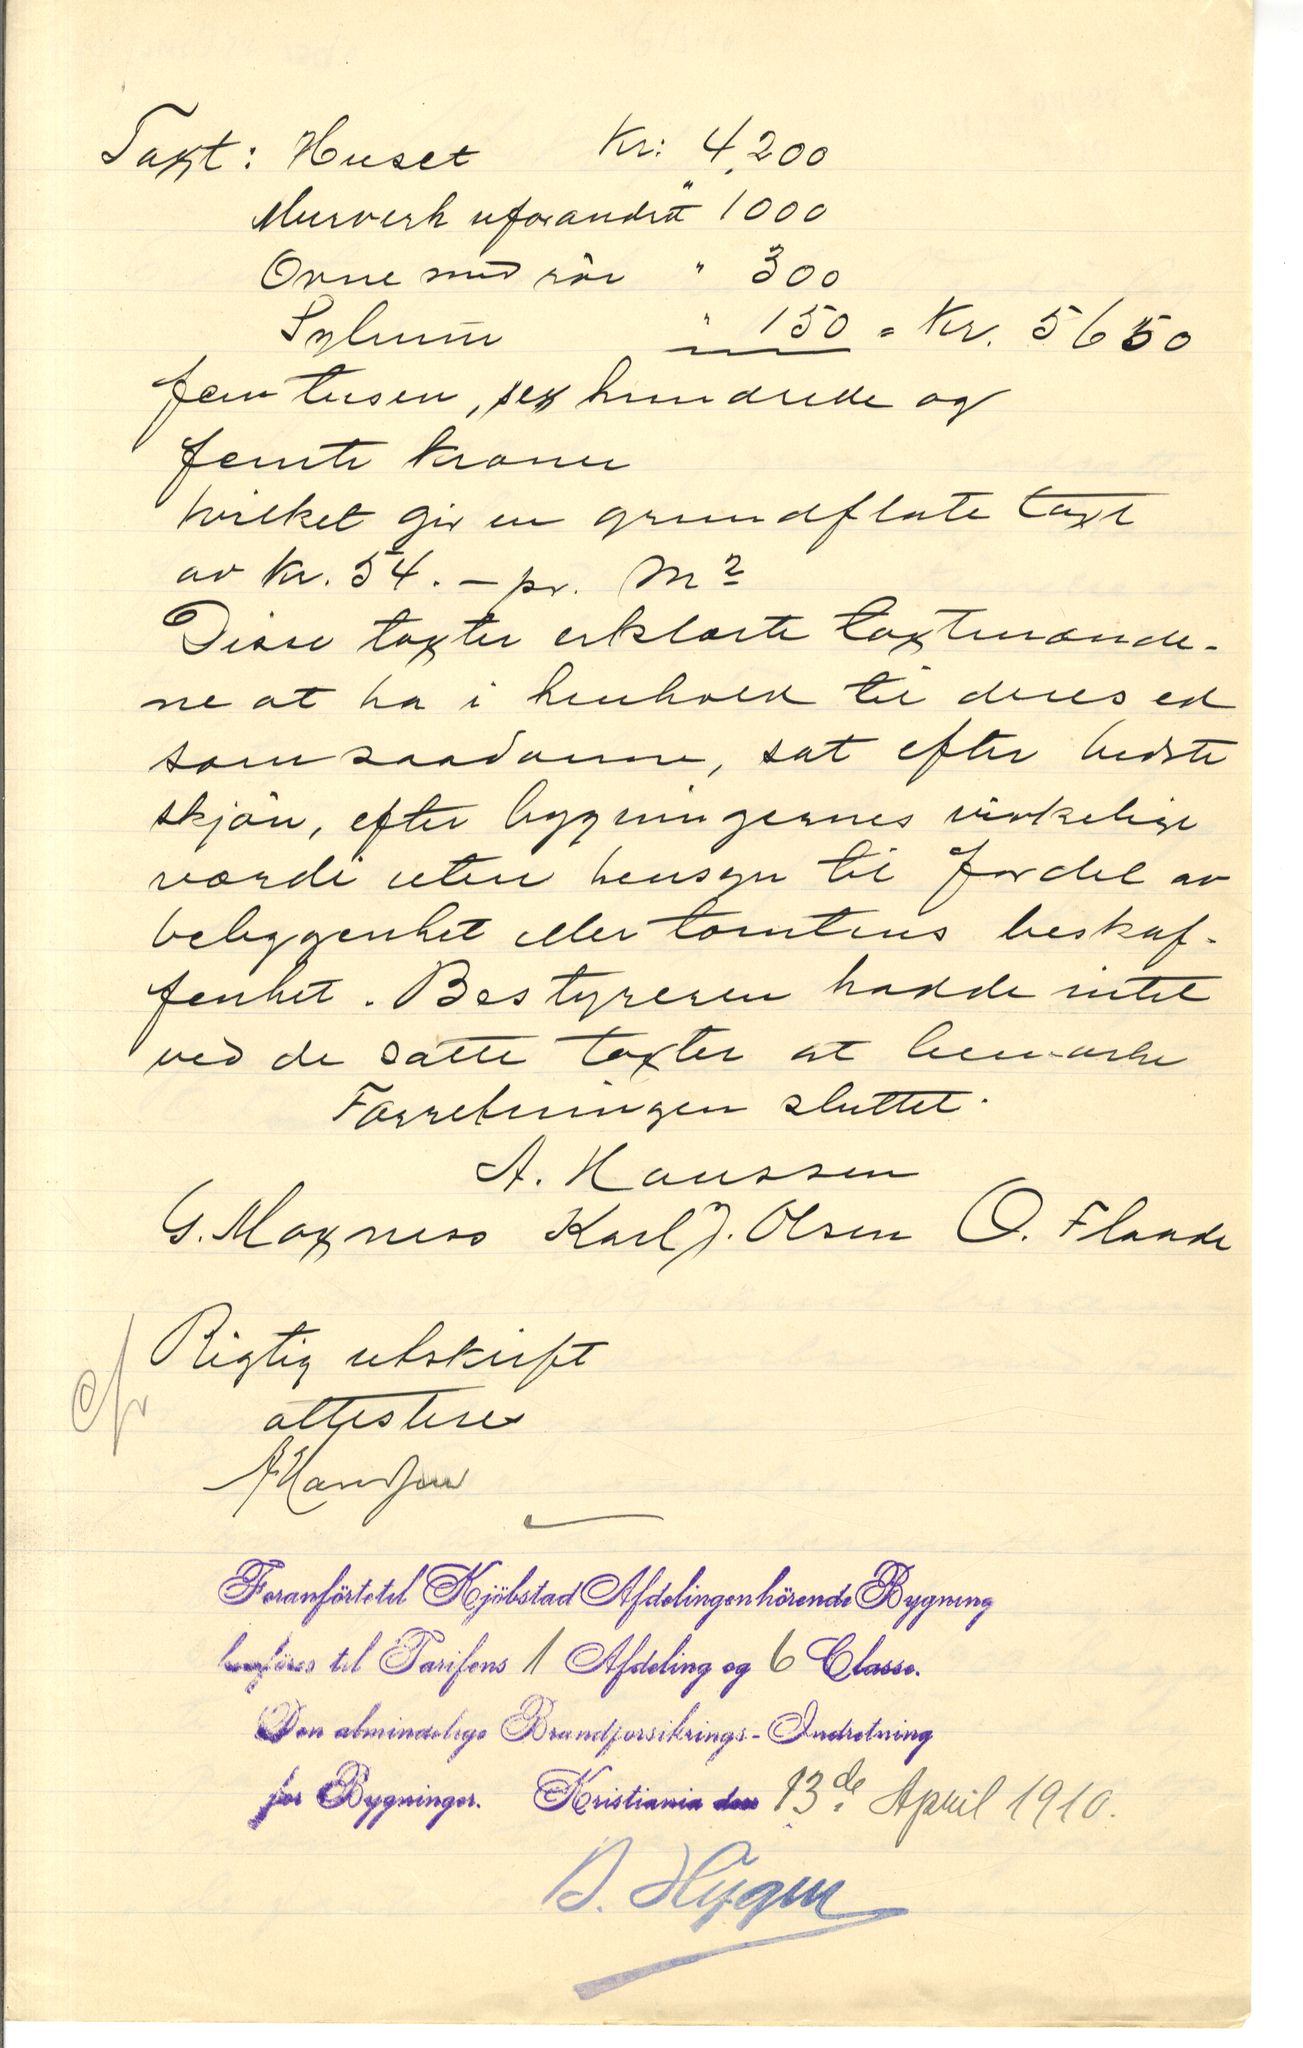 Taxt: Huset Kr: 4,200
Murverk uforandret " 1000
Ovne med rör " 300
" 150 = Kr. 5650
fem tusen, sex hundrede og
femti kroner
hvilket gir en grundflate taxt
av Kr. 54. – pr. M²
Disse taxter erklærte taxtmænde-
ne at ha i henhold til deres ed
som saadanne, sat efter bedste
skjön, efter bygningernes virkelige
værdi uten hensyn til fordel av
beliggenhet eller tomtens beskaf-
fenhet. Bestyreren hadde intet
ved de satte taxter at bemærke
Forretningen sluttet.
A. Hanssen
G. Moxness Karl J. Olsen O. Flaade
Rigtig utskrift
attesteres
A Hanssen
Foranförte til Kjöbstad Afdelingen hörende Bygning
henföres til Tarifens 1 Afdeling og 6 Classe.
Den almindelige Brandforsikrings-Indretning
for Bygninger. Kristiania den 13de April 1910.
B. Hygen